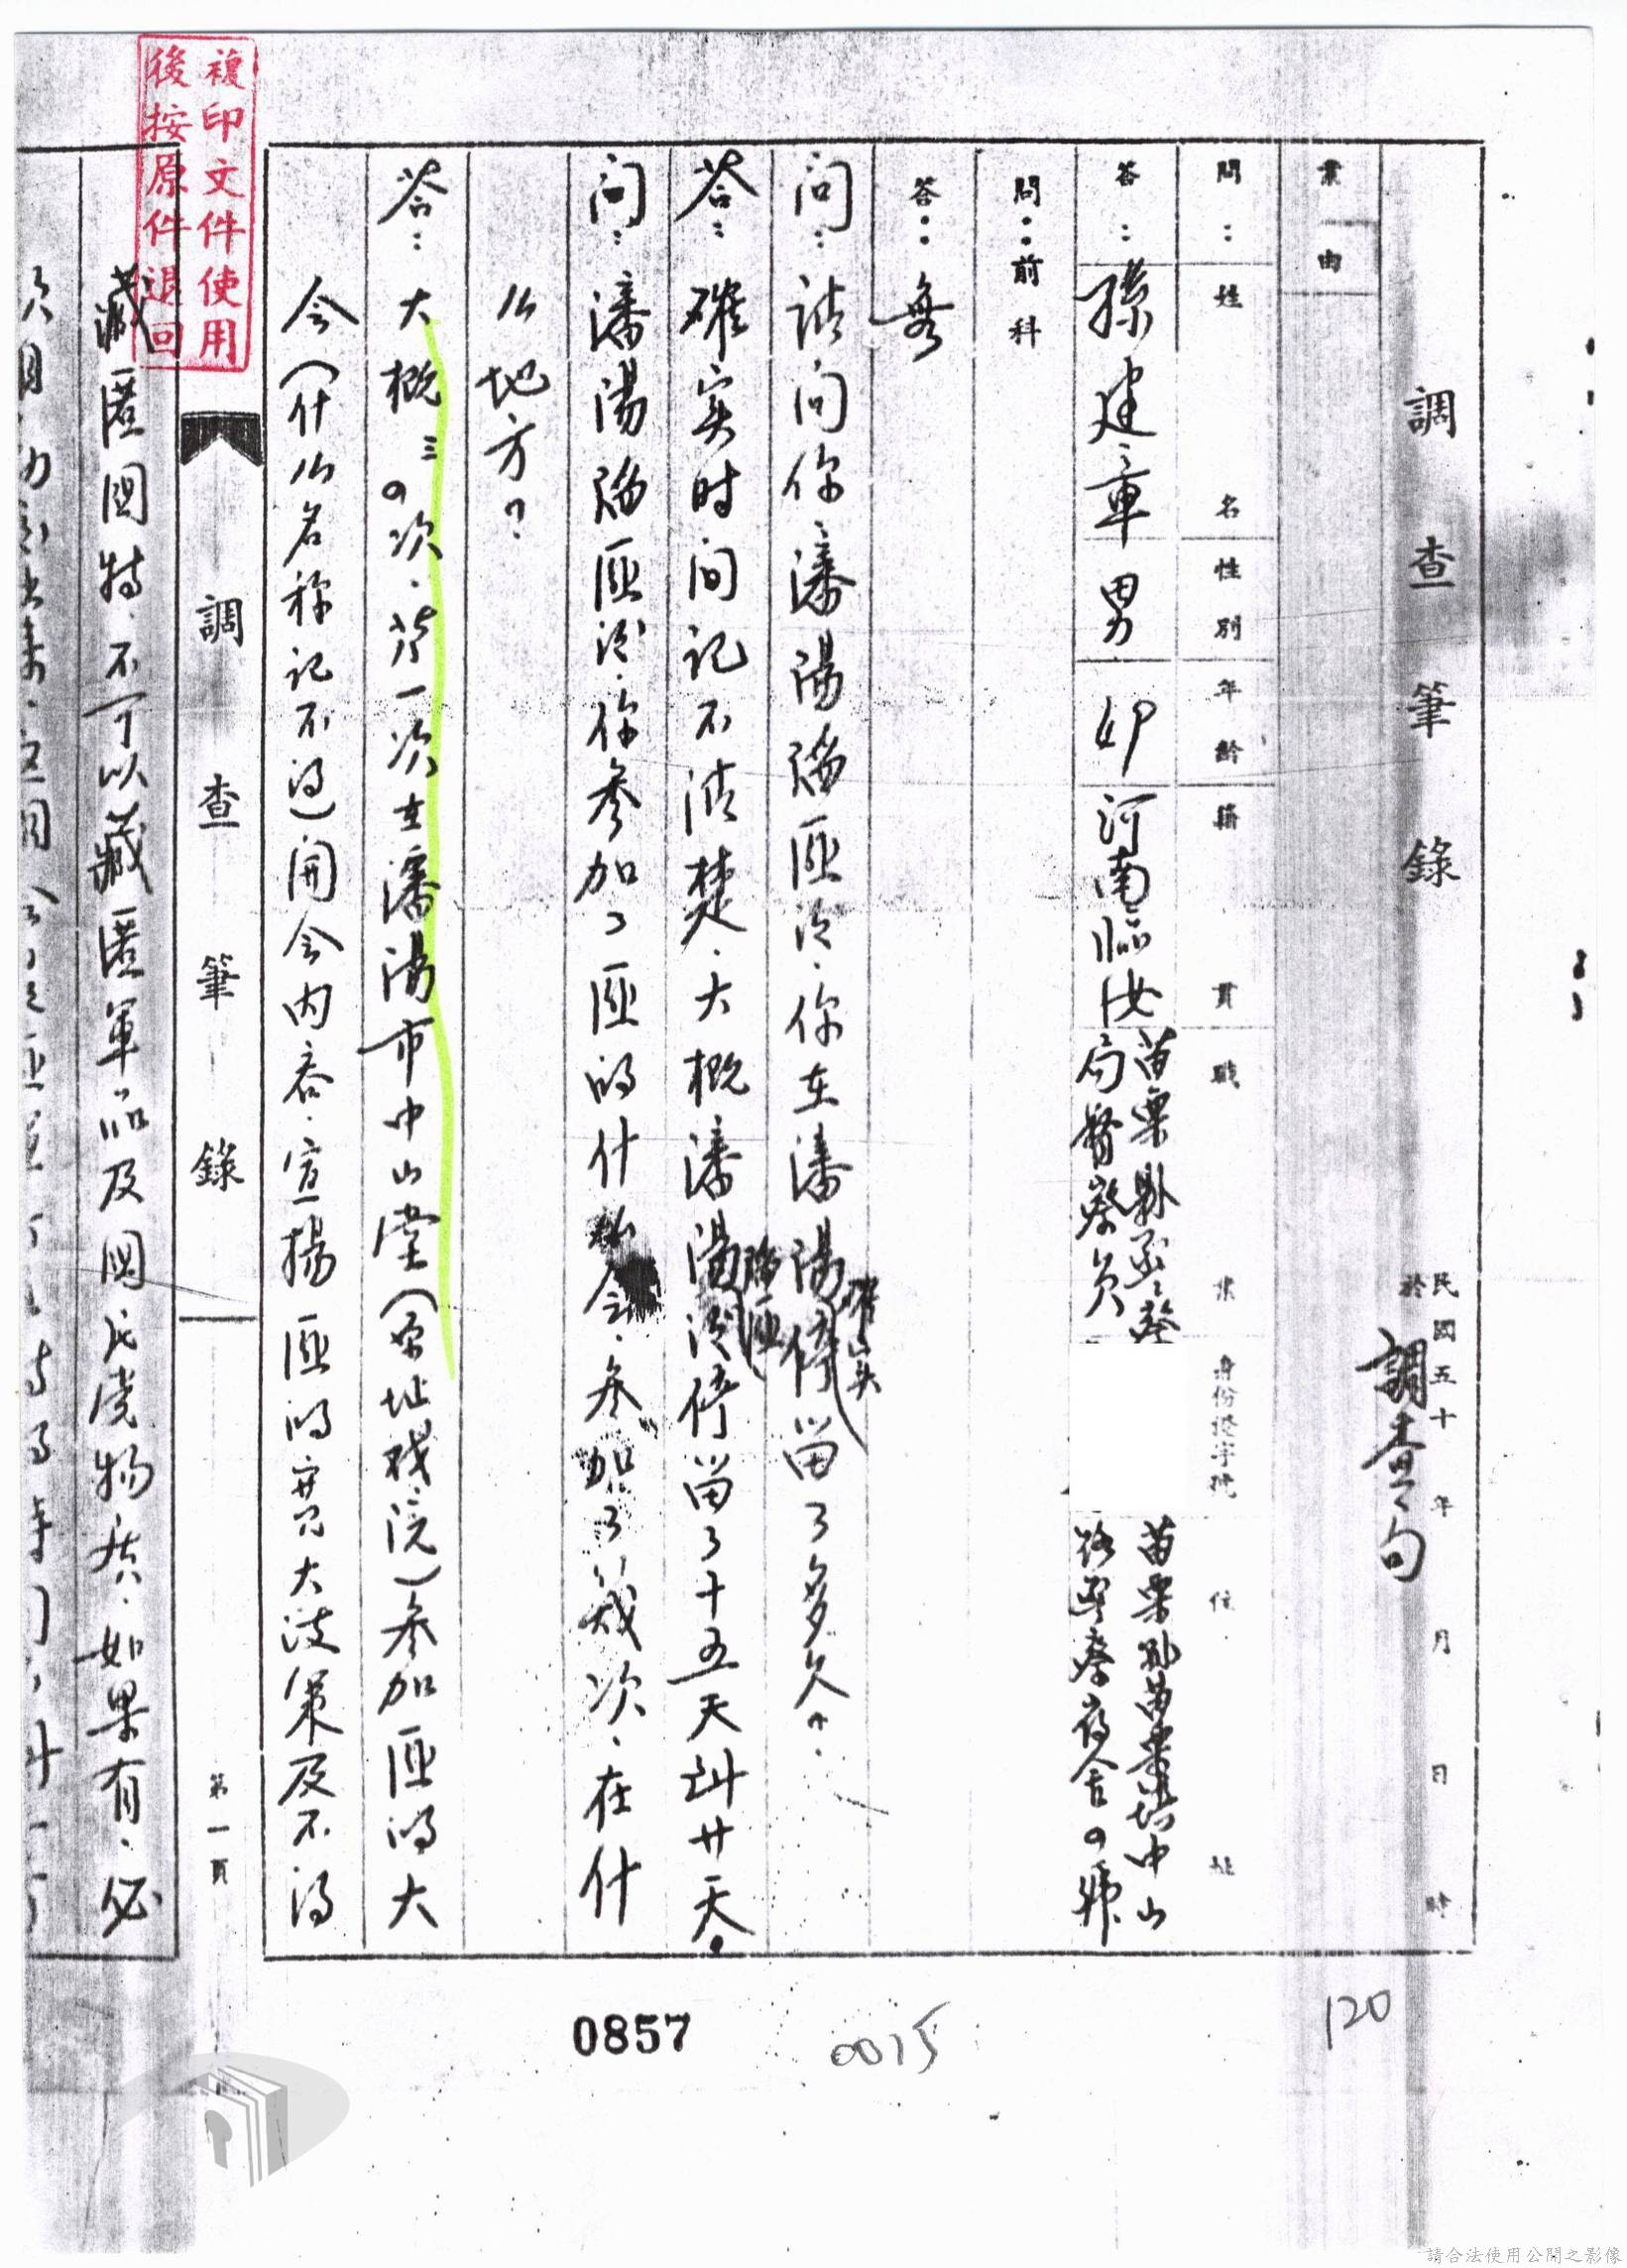 調查筆錄
民國五十 年 月 日 時
於
調查局
案由
問：姓名 性別 年齡 籍貫 職業 身份證字號 住址
答：孫建章 男 卅 河南臨汝 苗栗縣警察局督察員 苗栗縣苗栗鎮中山路警察宿舍四號
問：前科
答：無
問：請問你瀋陽淪匪後，你在瀋陽確实停留了多久？
答：確实时间記不清楚，大概瀋陽淪匪后停留了十五天到廿天。
问：瀋陽淪匪后，你参加了匪的什么会，参加了幾次，在什
么地方？
答：大概三四次，第一次在瀋陽市中山堂（原址戏院）参加匪的大
会（什么名称記不得）開会内容，宣揚匪的寬大政策及不得
調查筆錄
第一頁
藏匿國特，不可以藏匿軍品及國民党物资，如果有，必
複印文件使用
後按原件退回
0857
0015
120
請合法使用公開之影像